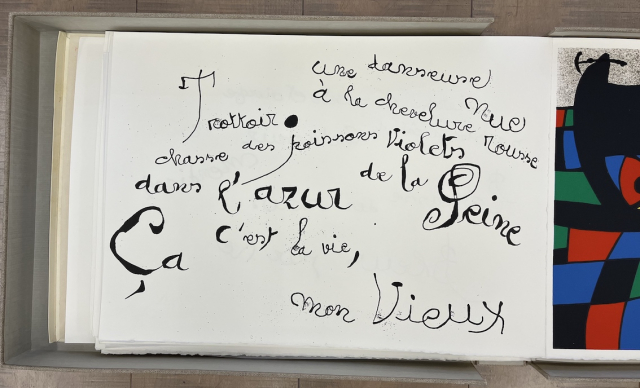 une danseuse
à la chevelure Nue rousse
Trottoir
chasse des poissons Violets
dans l'azur de la Seine
Ça c'est la vie,
mon Vieux